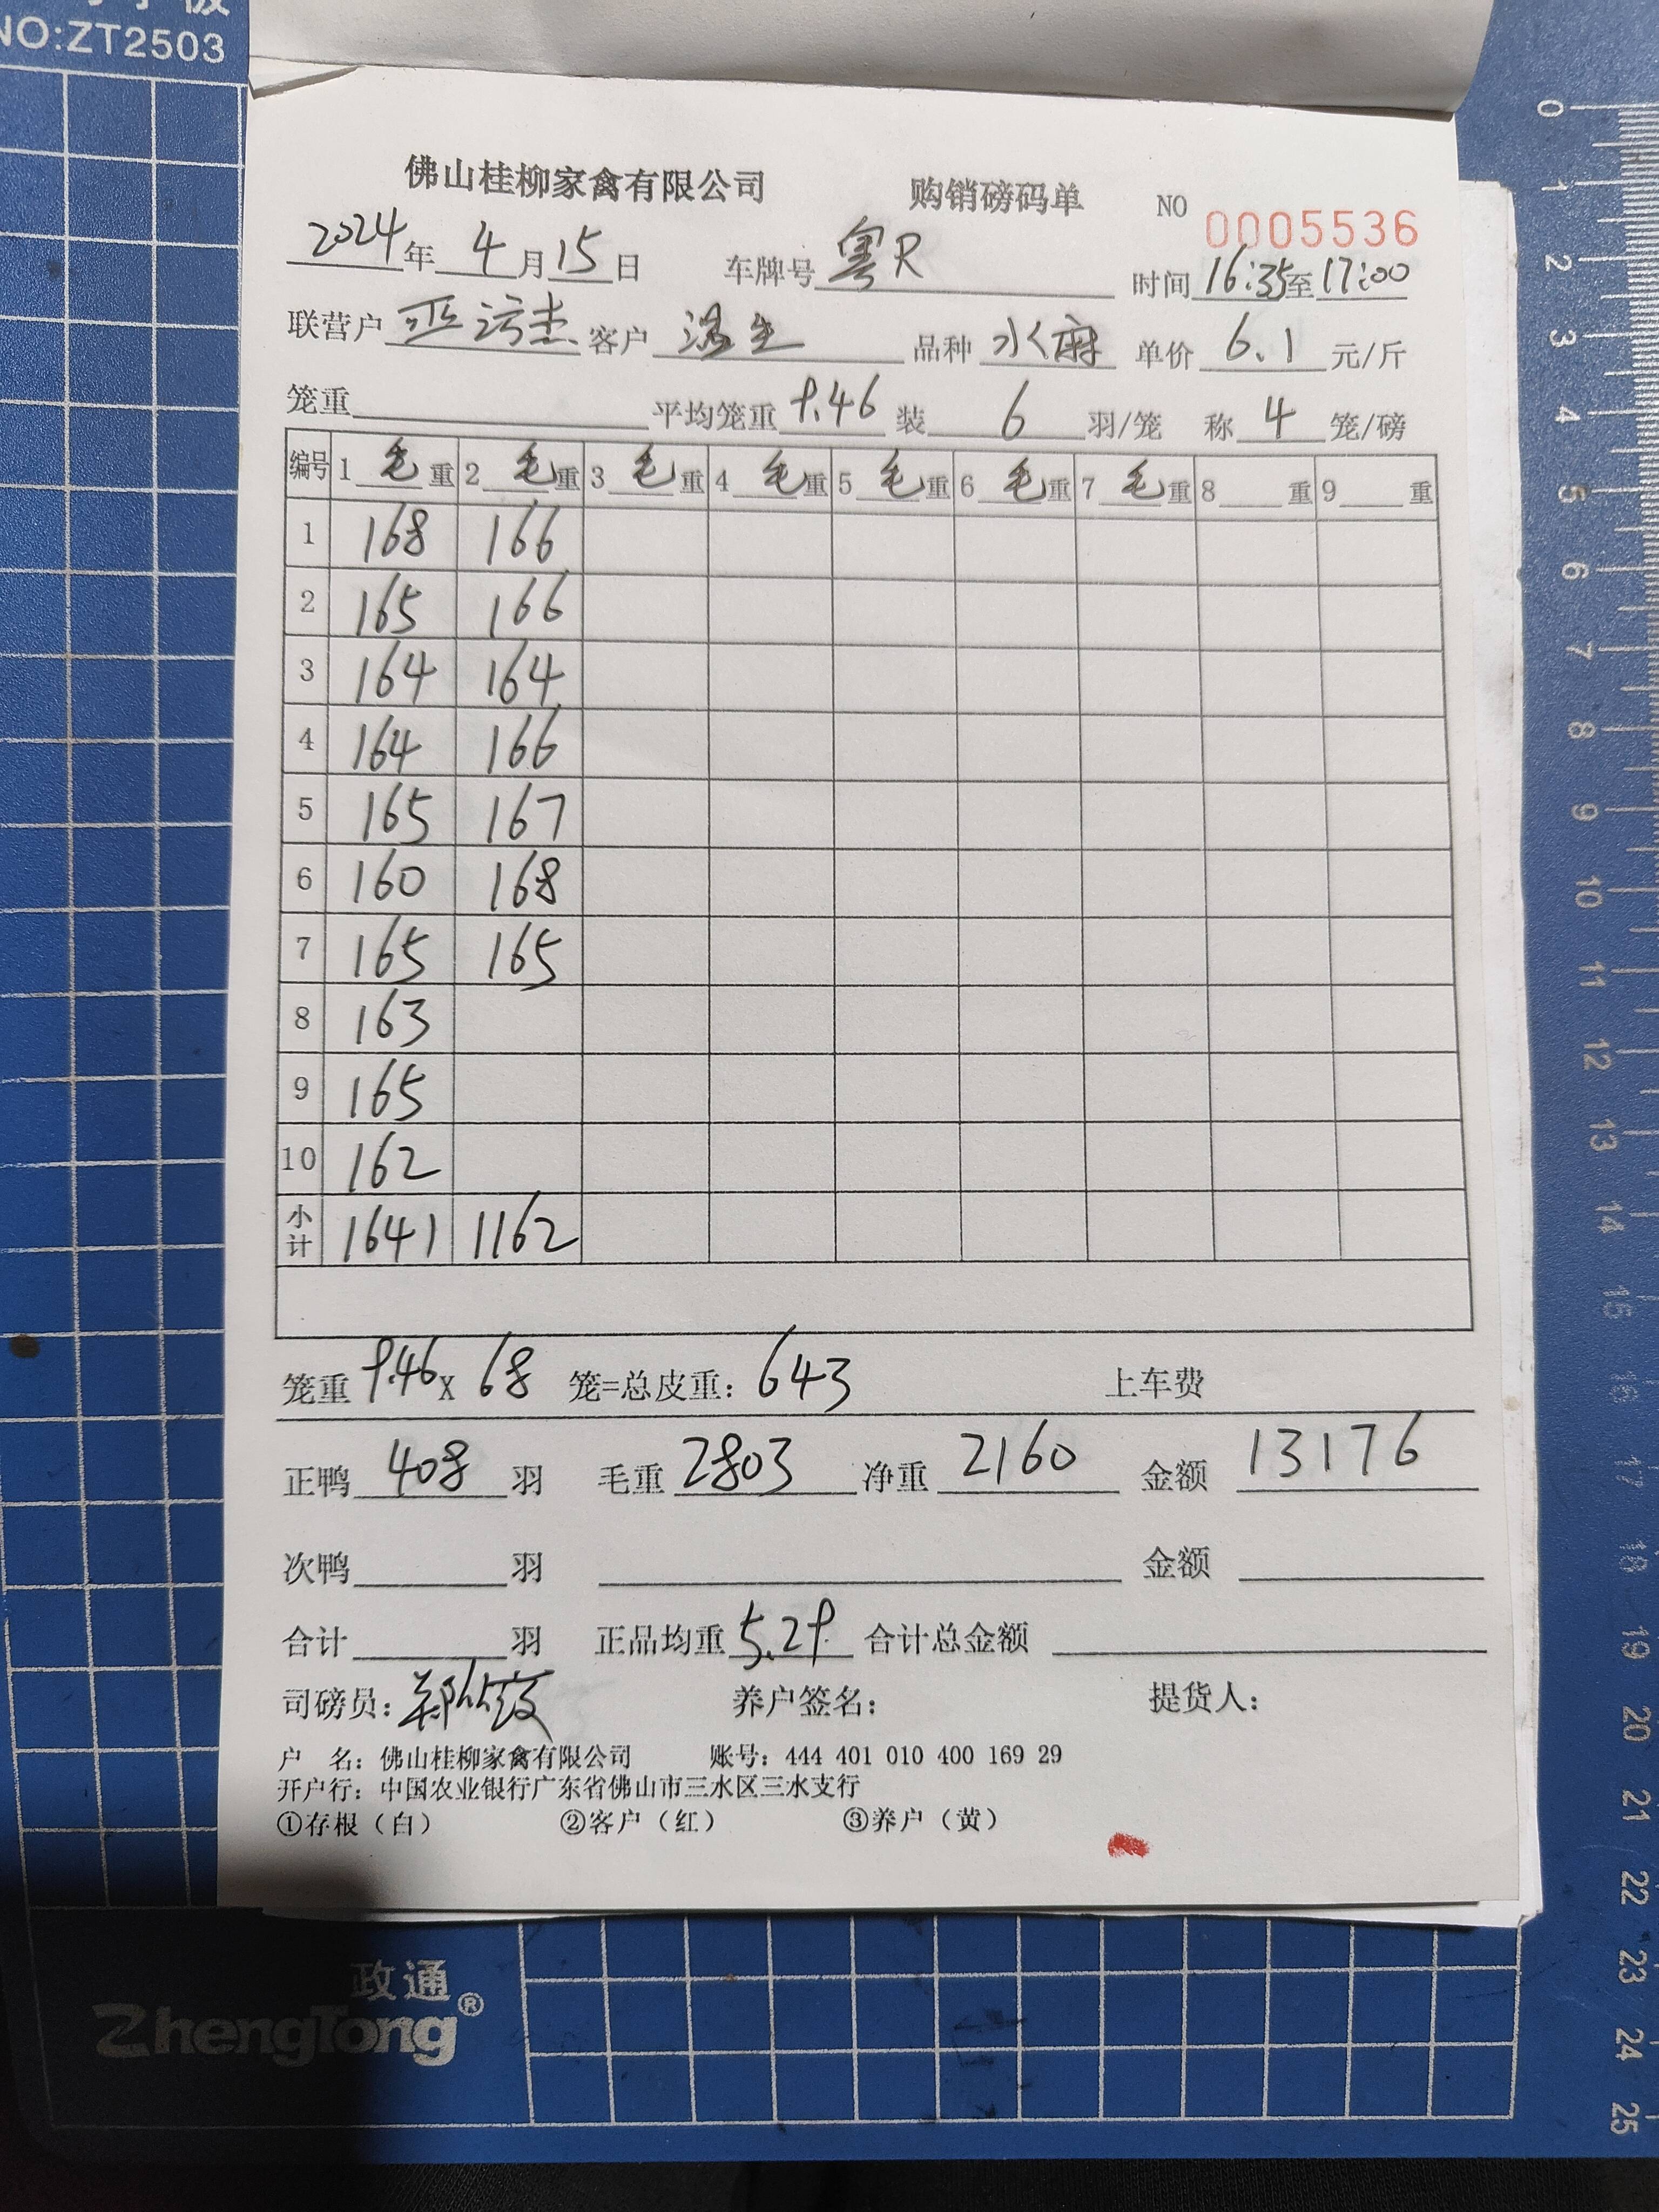 NO:ZT2503
佛山桂柳家禽有限公司 购销磅码单 NO 0005536
2024年4月15日 车牌号 粤R 时间16:35至17:00
联营户 客户 品种 水麻 单价 6.1 元/斤
笼重 平均笼重 9.46 装 6 羽/笼 称 4 笼/磅
编号 1 毛 重 2 毛 重 3 毛 重 4 毛 重 5 毛 重 6 毛 重 7 毛 重 8 重 9 重
1 168 166
2 165 166
3 164 164
4 164 166
5 165 167
6 160 168
7 165 165
8 163
9 165
10 162
小计 1641 1162
笼重 9.46 X 68 笼=总皮重：643 上车费
正鸭 408 羽 毛重 2803 净重 2160 金额 13176
次鸭 羽 金额
合计 羽 正品均重 5.29 合计总金额
司磅员： 养户签名： 提货人：
户 名：佛山桂柳家禽有限公司 账号：444 401 010 400 169 29
开户行：中国农业银行广东省佛山市三水区三水支行
①存根（白） ②客户（红） ③养户（黄）
政通
ZhengTong®
0 1 2 3 4 5 6 7 8 9 10 11 12 13 14 15 16 17 18 19 20 21 22 23 24 25